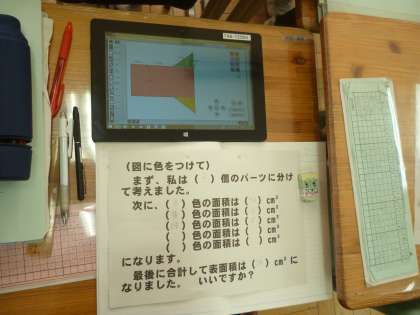 (図に色をつけて)
まず、私は( )個のパーツに分け
て考えました。
次に、( )色の面積は( )cm²
( )色の面積は( )cm²
( )色の面積は( )cm²
( )色の面積は( )cm²
( )色の面積は( )cm²
になります。
最後に合計して表面積は( )cm²に
なりました。 いいですか?